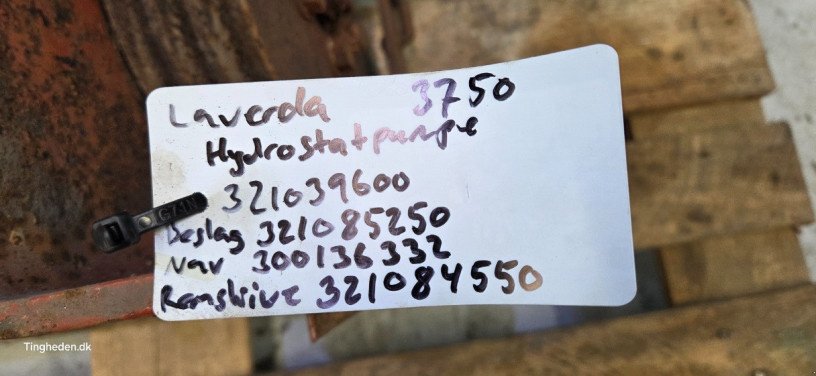 Laverda 3750
Hydrostatpumpe
321039600
Beslag 321085250
Nav 300136332
Remskive 321084550
Tingheden.dk